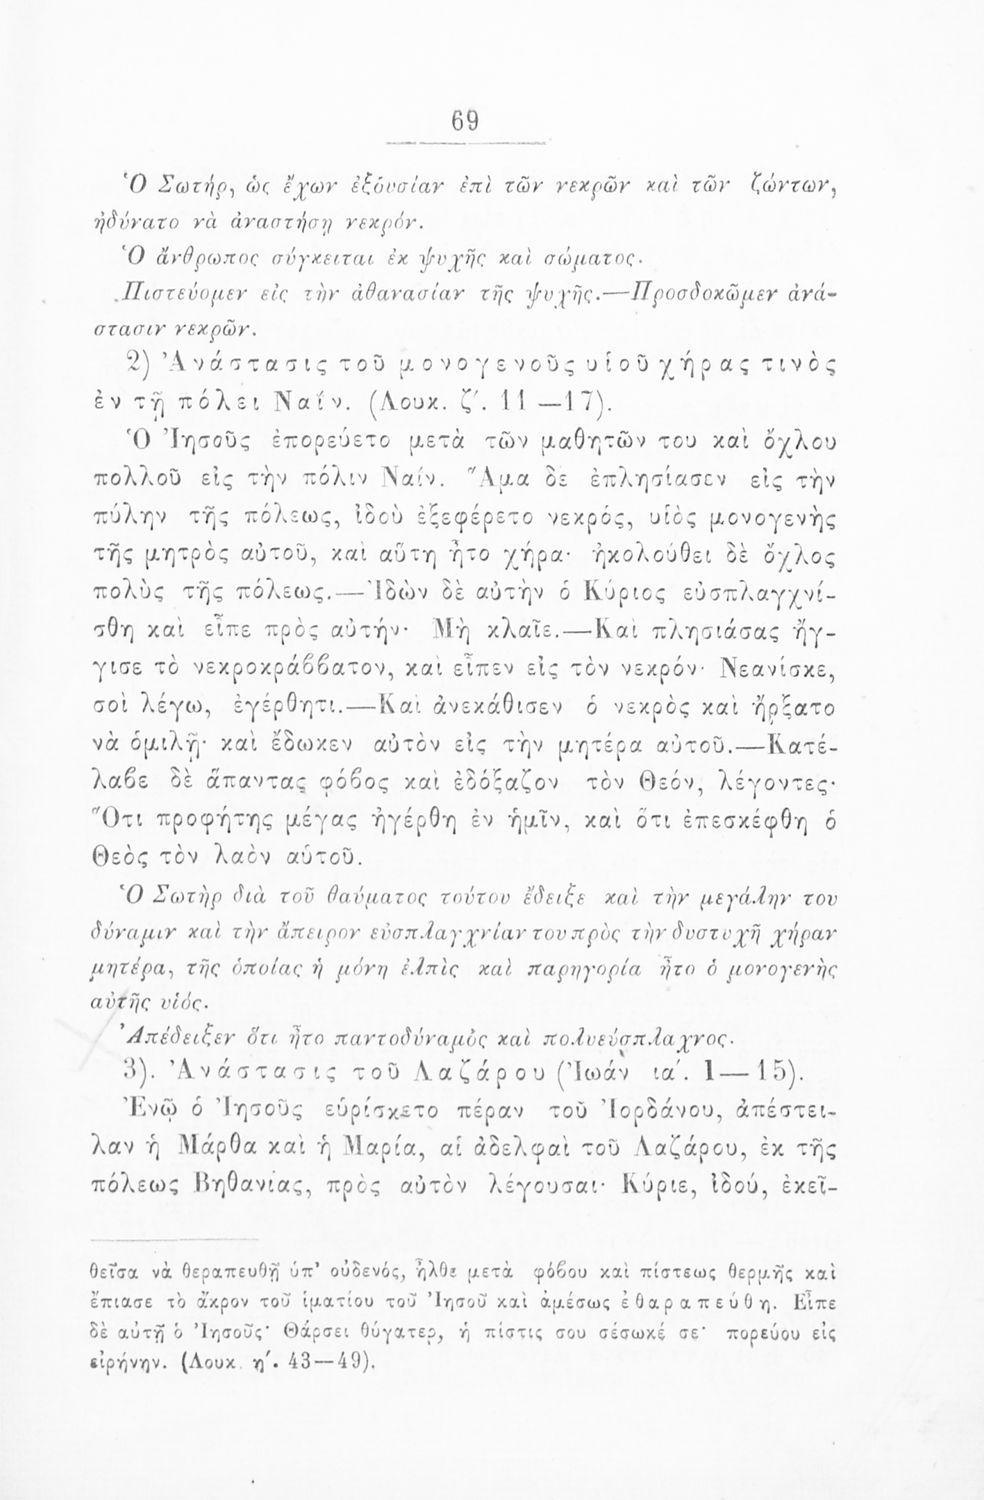 69
Ὁ Σωτήρ, ὡς ἔχων ἐξουσίαν ἐπὶ τῶν νεκρῶν καὶ τῶν ζώντων,
ἠδύνατο νὰ ἀναστήσῃ νεκρόν.
Ὁ ἄνθρωπος σύγκειται ἐκ ψυχῆς καὶ σώματος.
Πιστεύομεν εἰς τὴν ἀθανασίαν τῆς ψυχῆς.—Προσδοκῶμεν ἀνά-
στασιν νεκρῶν.
2) Ἀνάστασις τοῦ μονογενοῦς υἱοῦ χήρας τινὸς
ἐν τῇ πόλει Ναΐν. (Λουκ. ζʹ. 11—17).
Ὁ Ἰησοῦς ἐπορεύετο μετὰ τῶν μαθητῶν του καὶ ὄχλου
πολλοῦ εἰς τὴν πόλιν Ναΐν. Ἅμα δὲ ἐπλησίασεν εἰς τὴν
πύλην τῆς πόλεως, ἰδοὺ ἐξεφέρετο νεκρός, υἱὸς μονογενὴς
τῆς μητρὸς αὐτοῦ, καὶ αὕτη ἦτο χήρα· ἠκολούθει δὲ ὄχλος
πολὺς τῆς πόλεως.—Ἰδὼν δὲ αὐτὴν ὁ Κύριος εὐσπλαγχνί-
σθη καὶ εἶπε πρὸς αὐτήν· Μὴ κλαῖε.—Καὶ πλησιάσας ἤγ-
γισε τὸ νεκροκράββατον, καὶ εἶπεν εἰς τὸν νεκρόν· Νεανίσκε,
σοὶ λέγω, ἐγέρθητι.—Καὶ ἀνεκάθισεν ὁ νεκρὸς καὶ ἤρξατο
νὰ ὁμιλῇ· καὶ ἔδωκεν αὐτὸν εἰς τὴν μητέρα αὐτοῦ.—Κατέ-
λαβε δὲ ἅπαντας φόβος καὶ ἐδόξαζον τὸν Θεόν, λέγοντες·
Ὅτι προφήτης μέγας ἠγέρθη ἐν ἡμῖν, καὶ ὅτι ἐπεσκέφθη ὁ
Θεὸς τὸν λαὸν αὑτοῦ.
Ὁ Σωτὴρ διὰ τοῦ θαύματος τούτου ἔδειξε καὶ τὴν μεγάλην του
δύναμιν καὶ τὴν ἄπειρον εὐσπλαγχνίαν του πρὸς τὴν δυστυχῆ χήραν
μητέρα, τῆς ὁποίας ἡ μόνη ἐλπὶς καὶ παρηγορία ἦτο ὁ μονογενὴς
αὐτῆς υἱός.
Ἀπέδειξεν ὅτι ἦτο παντοδύναμὸς καὶ πολυεύσπλαχνος.
3). Ἀνάστασις τοῦ Λαζάρου (Ἰωάν ιαʹ. 1—15).
Ἐνῷ ὁ Ἰησοῦς εὑρίσκετο πέραν τοῦ Ἰορδάνου, ἀπέστει-
λαν ἡ Μάρθα καὶ ἡ Μαρία, αἱ ἀδελφαὶ τοῦ Λαζάρου, ἐκ τῆς
πόλεως Βηθανίας, πρὸς αὐτὸν λέγουσαι· Κύριε, ἰδού, ἐκεῖ-
θεῖσα νὰ θεραπευθῇ ὑπ' οὐδενός, ἦλθε μετὰ φόβου καὶ πίστεως θερμῆς καὶ
ἔπιασε τὸ ἄκρον τοῦ ἱματίου τοῦ Ἰησοῦ καὶ ἀμέσως ἐθαραπεύθη. Εἶπε
δὲ αὐτῇ ὁ Ἰησοῦς· Θάρσει θύγατερ, ἡ πίστις σου σέσωκέ σε· πορεύου εἰς
εἰρήνην. (Λουκ. ηʹ. 43—49).